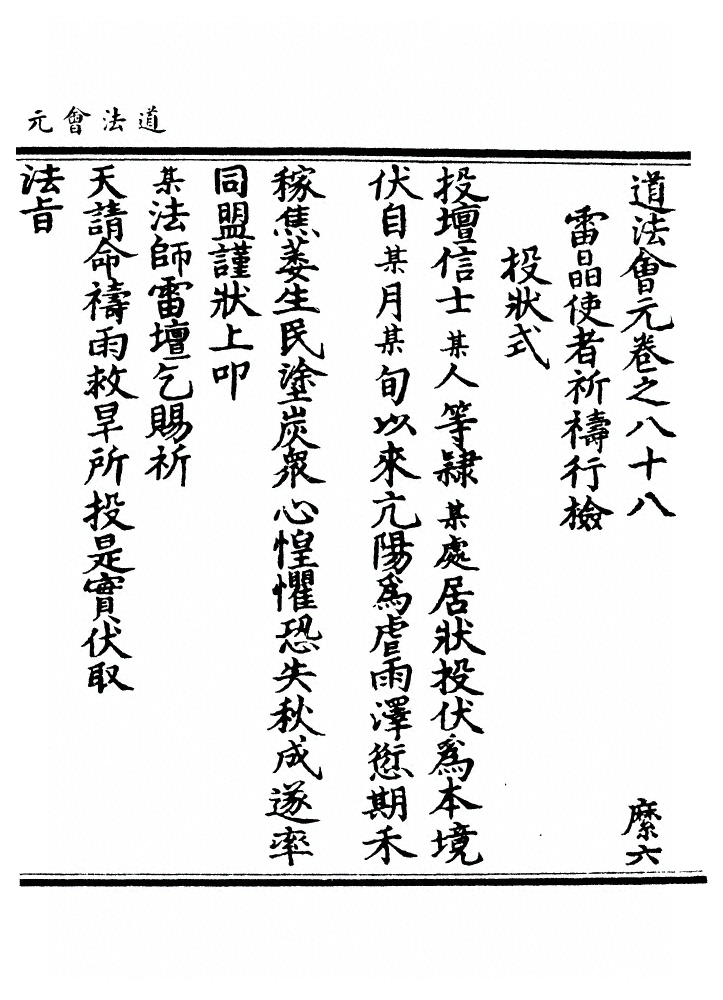 道法會元
道法會元卷之八十八 縻六
雷晶使者祈禱行檢
投狀式
投壇信士某人等隸某處居狀投伏爲本境
伏自某月某旬以來亢陽爲虐雨澤愆期禾
稼焦萎生民塗炭衆心惶懼恐失秋成遂率
同盟謹狀上叩
某法師雷壇乞賜祈
天請命禱雨救旱所投是實伏取
法旨